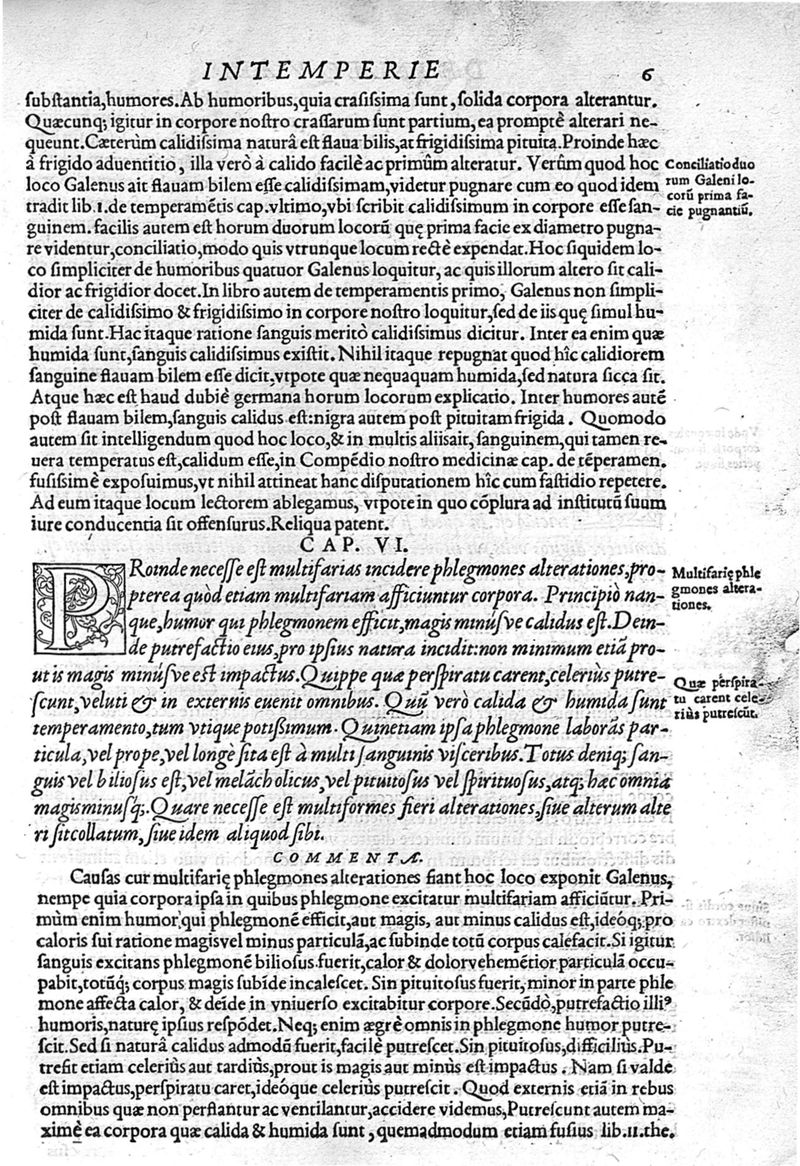 INTEMPERIE 6
substantia,humores.Ab humoribus,quia crassissima sunt, solida corpora alterantur.
Quæcunq; igitur in corpore nostro crassarum sunt partium, ea promptè alterari ne-
queunt.Cæterùm calidissima naturâ est flaua bilis,at frigidissima pituita.Proinde hæc
â frigido aduentitio, illa verò à calido facilè ac primûm alteratur. Verûm quod hoc
loco Galenus ait flauam bilem esse calidissimam,videtur pugnare cum eo quod idem
tradit lib.1.de temperamētis cap.vltimo,vbi scribit calidissimum in corpore esse san-
guinem. facilis autem est horum duorum locorū quę prima facie ex diametro pugna-
re videntur,conciliatio,modo quis vtrunque locum rectè expendat.Hoc siquidem lo-
co simpliciter de humoribus quatuor Galenus loquitur, ac quis illorum altero sit cali-
dior ac frigidior docet.In libro autem de temperamentis primo, Galenus non simpli-
citer de calidissimo & frigidissimo in corpore nostro loquitur,sed de iis quę simul hu-
mida sunt.Hac itaque ratione sanguis meritò calidissimus dicitur. Inter ea enim quæ
humida sunt,sanguis calidissimus existit. Nihil itaque repugnat quod hîc calidiorem
sanguine flauam bilem esse dicit,vtpote quæ nequaquam humida,sed natura sicca sit.
Atque hæc est haud dubiè germana horum locorum explicatio. Inter humores autē
post flauam bilem,sanguis calidus est:nigra autem post pituitam frigida. Quomodo
autem sit intelligendum quod hoc loco,& in multis aliisait, sanguinem,qui tamen re-
uera temperatus est,calidum esse,in Compēdio nostro medicinæ cap. de tēperamen.
fusissimè exposuimus,vt nihil attineat hanc disputationem hîc cum fastidio repetere.
Ad eum itaque locum lectorem ablegamus, vtpote in quo cōplura ad institutū suum
iure conducentia sit offensurus.Reliqua patent.
Conciliatio duo
rum Galeni lo-
corū prima fa-
cie pugnantiū.
CAP. VI.
PRoinde necesse est multifarias incidere phlegmones alterationes,pro-
pterea quòd etiam multifariam afficiuntur corpora. Principiò nan-
que,humor qui phlegmonem efficit,magis minúsve calidus est.Dein-
de putrefactio eius,pro ipsius natura incidit:non minimum etiā pro-
ut is magis minúsve est impactus.Quippe quæ perspiratu carent,celeriùs putre-
scunt,veluti & in externis euenit omnibus. Quū verò calida & humida sunt
temperamento,tum vtique potißimum. Quinetiam ipsa phlegmone laborās par-
ticula,vel prope,vel longè sita est à multi sanguinis visceribus.Totus deniq; san-
guis vel biliosus est,vel melācholicus,vel pituitosus vel spirituosus,atq; hæc omnia
magis minusq;.Quare necesse est multiformes fieri alterationes,siue alterum alte
ri sit collatum,siue idem aliquod sibi.
Multifarię phle
gmones altera-
tiones.
Quæ perspira-
tu carent cele-
riùs putrescūt.
COMMENTA.
Causas cur multifarię phlegmones alterationes fiant hoc loco exponit Galenus,
nempe quia corpora ipsa in quibus phlegmone excitatur multifariam afficiūtur. Pri-
mùm enim humor, qui phlegmonē efficit,aut magis, aut minus calidus est,ideóq; pro
caloris sui ratione magisvel minus particulā,ac subinde totū corpus calefacit.Si igitur
sanguis excitans phlegmonē biliosus fuerit,calor & dolorvehemētior particulā occu-
pabit,totūq; corpus magis subīde incalescet. Sin pituitosus fuerit, minor in parte phle
mone affecta calor, & deīde in vniuerso excitabitur corpore. Secūdò,putrefactio illiꝰ
humoris,naturę ipsius respōdet. Neq; enim ægrè omnis in phlegmone humor putre-
scit.Sed si naturâ calidus admodū fuerit,facilè putrescet.Sin pituitosus,difficiliùs.Pu-
trefit etiam celeriùs aut tardiùs,prout is magis aut minùs est impactus. Nam si valde
est impactus,perspiratu caret,ideóque celeriùs putrescit. Quod externis etiā in rebus
omnibus quæ non perflantur ac ventilantur,accidere videmus,Putrescunt autem ma-
ximè ea corpora quæ calida & humida sunt, quemadmodum etiam fusius lib.11.the.